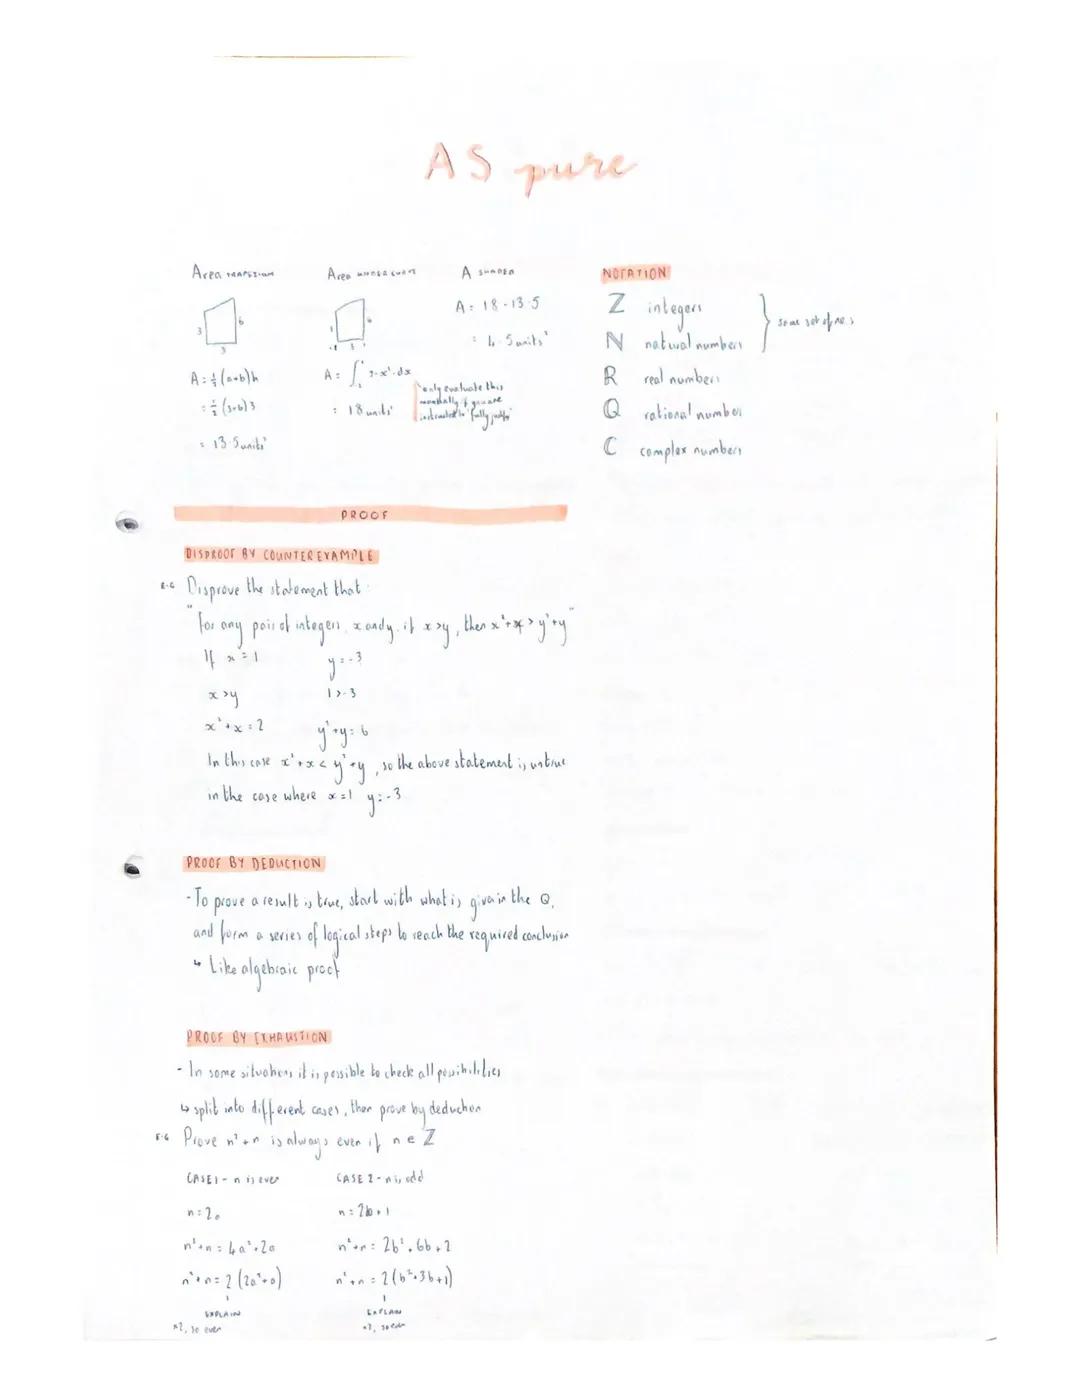 AS pure
Area TRAPEZIUM
3
6
3
A = ½(a+b)h
= ½(3+6)3
= 13.5units²
Area UNDER CURVE
6
A = ∫ 9-x² dx
= 18 units²
only evaluate this
manually if you are
instructed to "fully justify"
A SHADED
A = 18 - 13.5
= 4.5units²
NOTATION
ℤ integers
ℕ natural numbers
some set of no.s
ℝ real numbers
ℚ rational number
ℂ complex numbers
PROOF
DISPROOF BY COUNTER EXAMPLE
E.G Disprove the statement that:
"for any pair of integers, x and y, if x>y, then x²+x > y²+y"
If x = 1 y = -3
x > y 1 > -3
x²+x = 2 y²+y = 6
In this case x²+x < y²+y, so the above statement is untrue
in the case where x=1 y=-3
PROOF BY DEDUCTION
- To prove a result is true, start with what is given in the Q,
and form a series of logical steps to reach the required conclusion
↳ Like algebraic proof
PROOF BY EXHAUSTION
- In some situations it is possible to check all possibilities
↳ split into different cases, then prove by deduction
E.G Prove n²+n is always even if n ∈ ℤ
CASE 1 - n is even
n = 2a
n²+n = 4a²+2a
n²+n = 2(2a²+a)
EXPLAIN
×2, so even
CASE 2 - n is odd
n = 2b+1
n²+n = 2b²+6b+2
n²+n = 2(b²+3b+1)
EXPLAIN
×2, so even